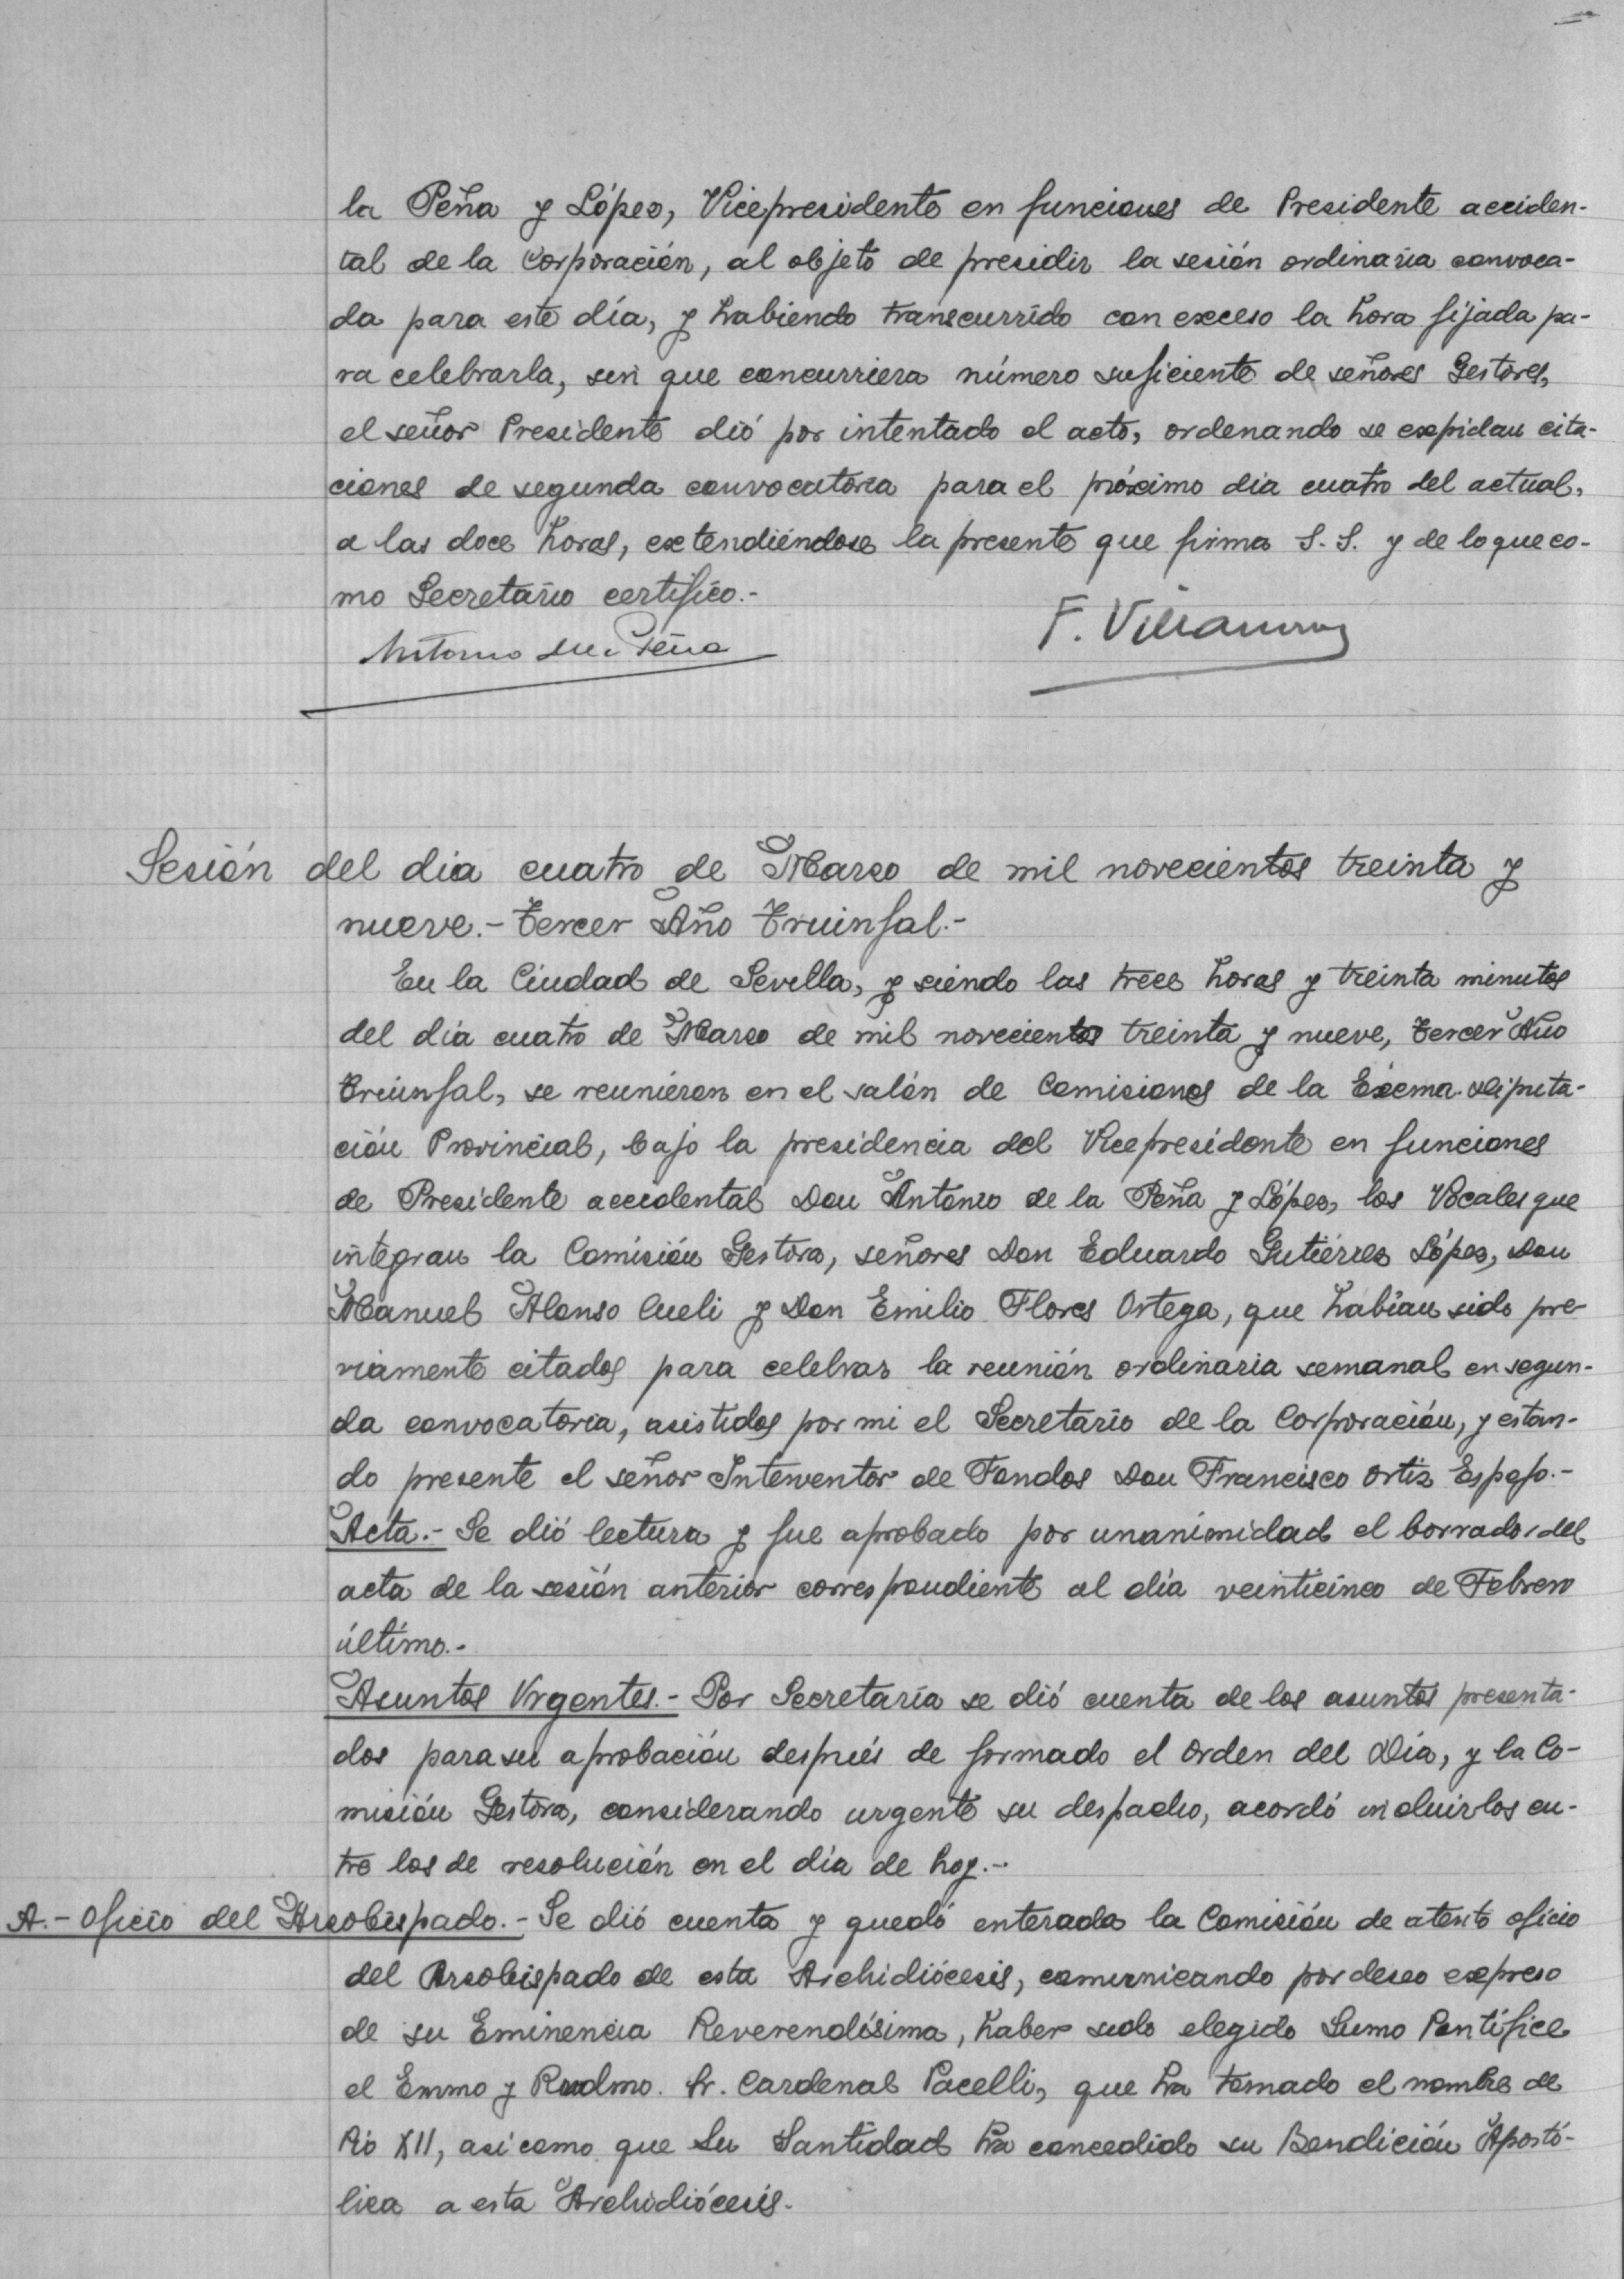 la Peña y López, Vicepresidente en funciones de Presidente acciden-
tal de la Corporación, al objeto de presidir la sesión ordinaria convoca-
da para este día, y habiendo transcurrido con exceso la hora fijada pa-
ra celebrarla, sin que concurriera número suficiente de señores Gestores,
el señor Presidente dió por intentado el acto, ordenando se expidan cita-
ciones de segunda convocatoria para el próximo dia cuatro del actual,
a las doce horas, extendiéndose la presente que firma S.S. y de lo que co-
mo Secretario certifico.-
Antonio de la Peña
F.
Sesión del dia cuatro de Marzo de mil novecientos treinta y
nueve.- Tercer Año Triunfal.-
En la Ciudad de Sevilla, y siendo las trece horas y treinta minutos
del día cuatro de Marzo de mil novecientos treinta y nueve, Tercer Año
Triunfal, se reunieron en el salón de Comisiones de la Excma. Diputa-
ción Provincial, bajo la presidencia del Vicepresidente en funciones
de Presidente accidental Don Antonio de la Peña y López, los Vocales que
integran la Comisión Gestora, señores Don Eduardo Gutiérrez López, Don
Manuel Alonso Cueli y Don Emilio Flores Ortega, que habían sido pre-
viamente citados para celebrar la reunión ordinaria semanal en segun-
da convocatoria, asistidos por mi el Secretario de la Corporación, y estan-
do presente el señor Interventor de Fondos Don Francisco Ortiz Espejo.-
Acta.- Se dió lectura y fue aprobado por unanimidad el borrador del
acta de la sesión anterior correspondiente al día veinticinco de Febrero
último.-
Asuntos Urgentes.- Por Secretaría se dió cuenta de los asuntos presenta-
dos para su aprobación después de formado el Orden del Día, y la Co-
misión Gestora, considerando urgente su despacho, acordó incluirlos en-
tre los de resolución en el día de hoy.-
A.- Oficio del Arzobispado.- Se dió cuenta y quedó enterada la Comisión de atento oficio
del Arzobispado de esta Archidiócesis, comunicando por deseo expreso
de su Eminencia Reverendísima, haber sido elegido Sumo Pontífice
el Emmo y Rvdmo. Sr. Cardenal Pacelli, que ha tomado el nombre de
Pio XII, asi como que Su Santidad ha concedido su Bendición Apostó-
lica a esta Archidiócesis.